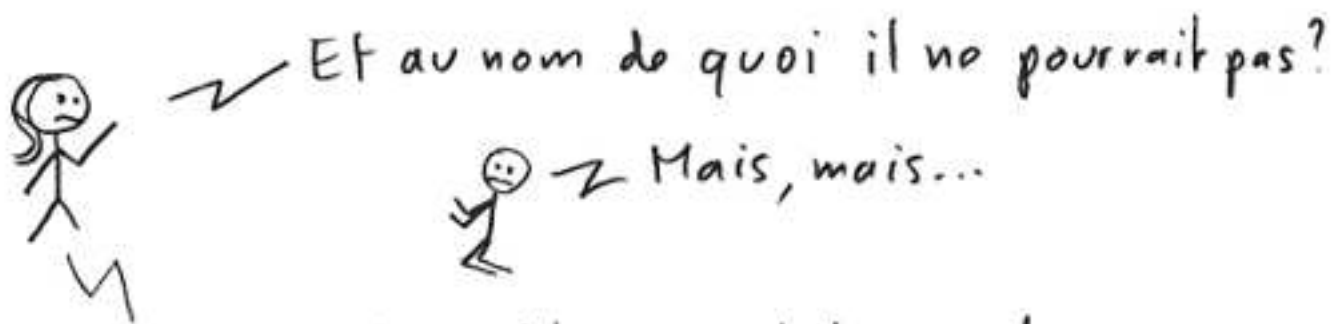 Et au nom de quoi il ne pourrait pas?
Mais, mais...